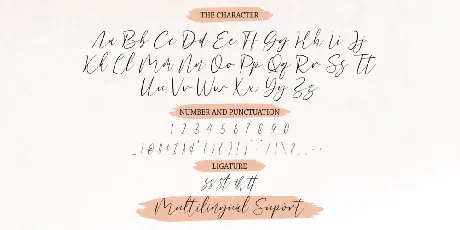 THE CHARACTER
Aa Bb Cc Dd Ee Ff Gg Hh Ii Jj
Kk Ll Mm Nn Oo Pp Qq Rr Ss Tt
Uu Vv Ww Xx Yy Zz
NUMBER AND PUNCTUATION
1 2 3 4 5 6 7 8 9 0
LIGATURE
ss st th tt
Multilingual Suport